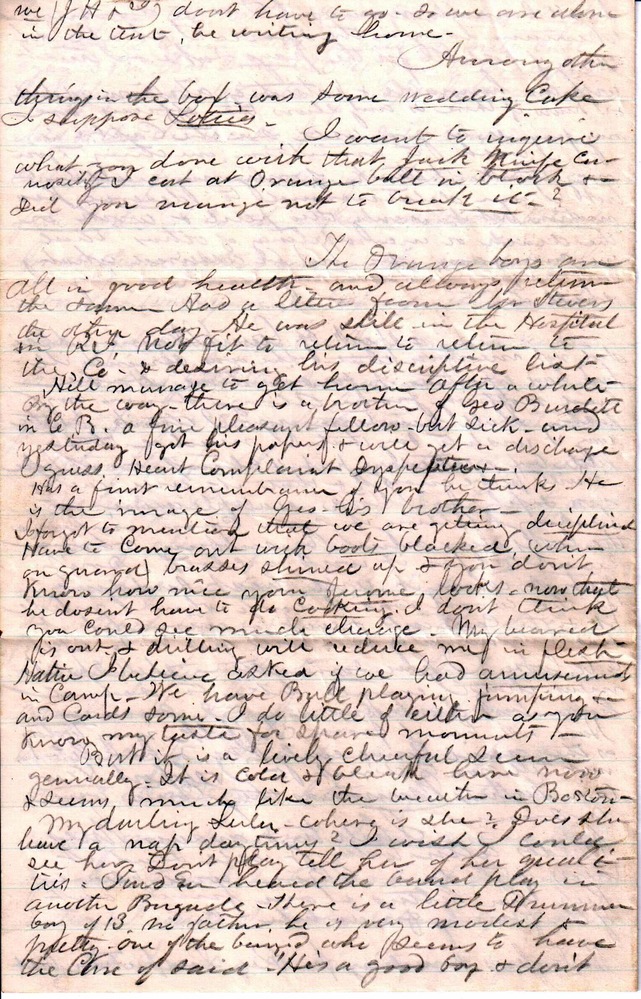 we (J H & I) dont have to go - so we are alone
in the tent, he writing home -
Among other
things in the box was some wedding Cake
I suppose
I want to inquire
what you done with that
I at Orange ball in &
Did you manage not to break it - ?
The Orange boys are
all in good health and always return
the same Had a letter from Stevens
the other day - He was still in the Hospital
not fit to return to return to
the Co. & desiring his discriptive list -
Hill manage to get home after a while
By the way - there is a brother of Geo Burdett
in Co B. a fine pleasant fellow - but sick - and
yesterday got his papers & will get a discharge
I guess. Heart Complaint
Has a faint remembrance of you he thinks. He
is the image of Geo - his brother -
I forgot to mention that we are getting diciplined
Have to Come out with boots blacked, when
on guard, brasses shined up & you dont
know how nice your Jerome looks - now that
he dosent have to do Cooking. I dont think
you could see much change - My beard
is out, & drilling will reduce me in flesh
Hattie I believe asked if we had amusement
in Camp - We have Ball playing jumping &
and Cards some - I do little of either as you
know my taste for spare moments -
But it is a lively cheerful scene
genually. It is cold & bleak here now
& seems much like the weather in Boston -
My darling Lulu - where is she? Does she
have a nap day times? I wish I could
see her Dont tell her of her
- heard the band play in
another Brigade - There is a little Drummer
boy of 13. no father, he is very modest &
pretty - one of the band who seems to have
the Care of said "He's a good boy & don't